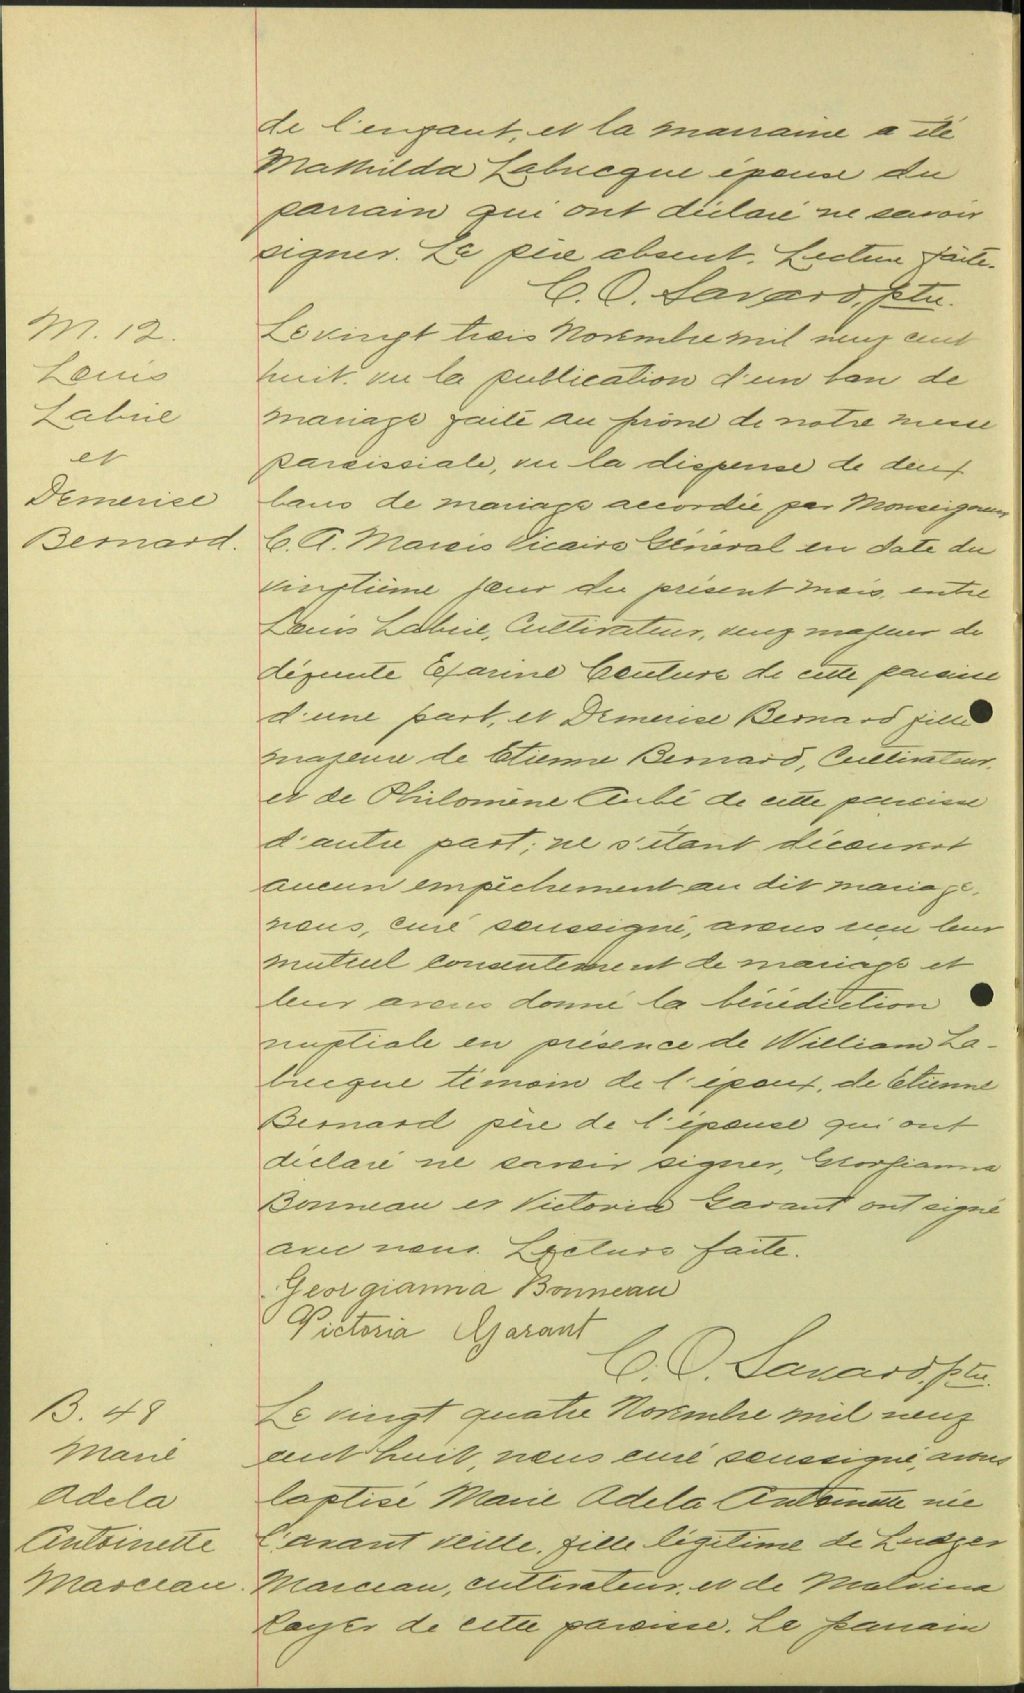 de l'enfant, et la marraine a été
Mathilda Labrecque épouse du
parrain qui ont déclaré ne savoir
signer. Le père absent. Lecture faite.
C. O. Savard, ptre.
M. 12.
Louis
Labrie
et
Demerise
Bernard.
Le vingt trois Novembre mil neuf cent
huit. vu la publication d'un ban de
mariage faite au prône de notre messe
paroissiale, vu la dispense de deux
bans de mariage accordée par Monseigneur
C. A. Marois Vicaire Général en date du
vingtième jour du présent mois, entre
Louis Labrie, Cultivateur, veuf majeur de
défunte Exarine Couture de cette paroisse
d'une part, et Demerise Bernard fille
majeure de Etienne Bernard, Cultivateur,
et de Philomène Aubé de cette paroisse
d'autre part; ne s'étant découvert
aucun empêchement au dit mariage,
nous, curé soussigné, avons reçu leur
mutuel consentement de mariage et
leur avons donné la bénédiction
nuptiale en présence de William La-
brecque témoin de l'époux, de Etienne
Bernard père de l'épouse qui ont
déclaré ne savoir signer, Georgianna
Bonneau et Victoria Garant ont signé
avec nous. Lecture faite.
Georgianna Bonneau
Victoria Garant
C. O. Savard, ptre.
B. 48
Marie
Adela
Antoinette
Marceau.
Le vingt quatre Novembre mil neuf
cent huit, nous curé soussigné, avons
baptisé Marie Adela Antoinette née
l'avant veille, fille légitime de Ludger
Marceau, cultivateur, et de Malvina
Royer de cette paroisse. Le parrain